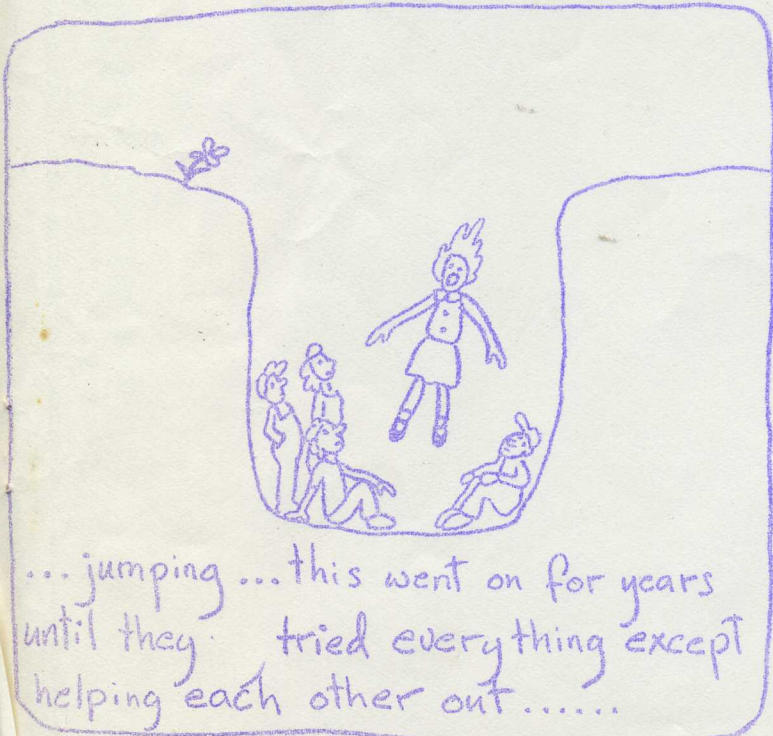 ... jumping ... this went on for years
until they tried everything except
helping each other out ......